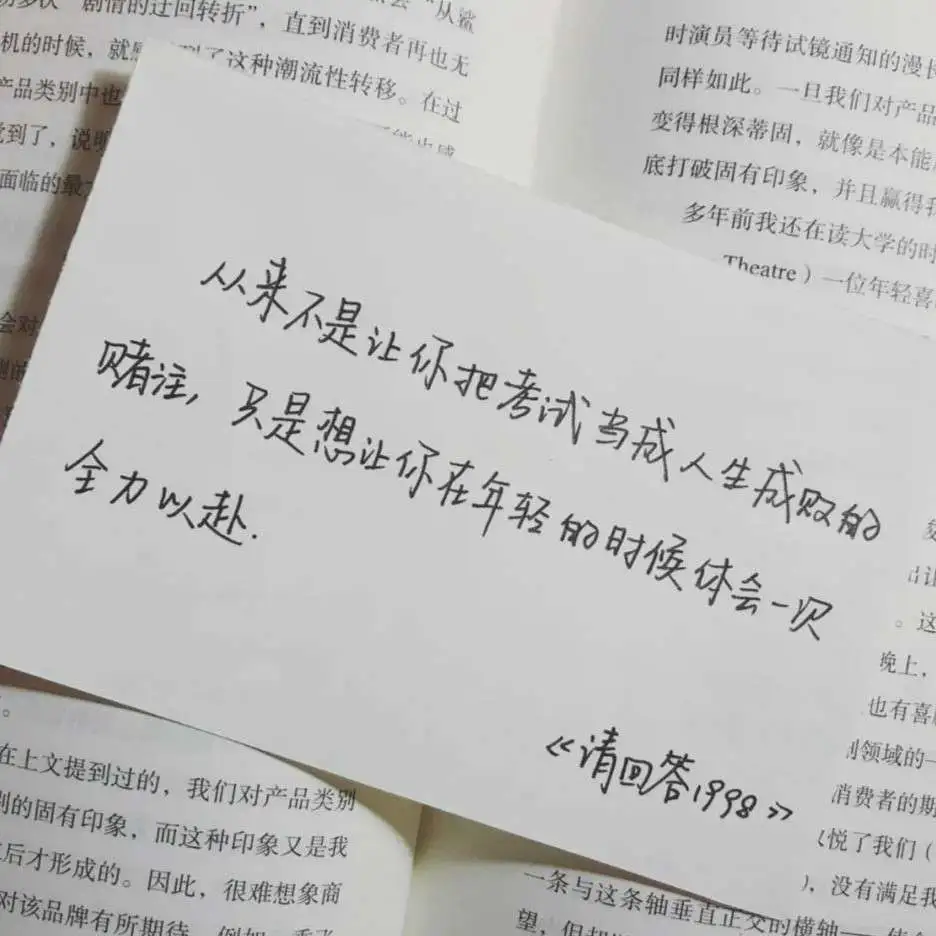 剧情的迂回转折”，直到消费者再也无
机的时候，就
了这种潮流性转移。在过
产品类别中也
觉到了，说明
面临的最大
时演员等待试镜通知的漫长
同样如此。一旦我们对产品
变得根深蒂固，就像是本能
底打破固有印象，并且赢得我
多年前我还在读大学的时
Theatre）一位年轻喜
从来不是让你把考试当成人生成败的
赌注，只是想让你在年轻的时候体会一次
全力以赴.
《请回答1998》
会对
。这
晚上，
也有喜
领域的一
消费者的期
悦了我们（
），没有满足我
在上文提到过的，我们对产品类别
别的固有印象，而这种印象又是我
后才形成的。因此，很难想象商
对该品牌有所期待。例如，乘飞
一条与这条轴垂直正交的横轴——使
望，但却